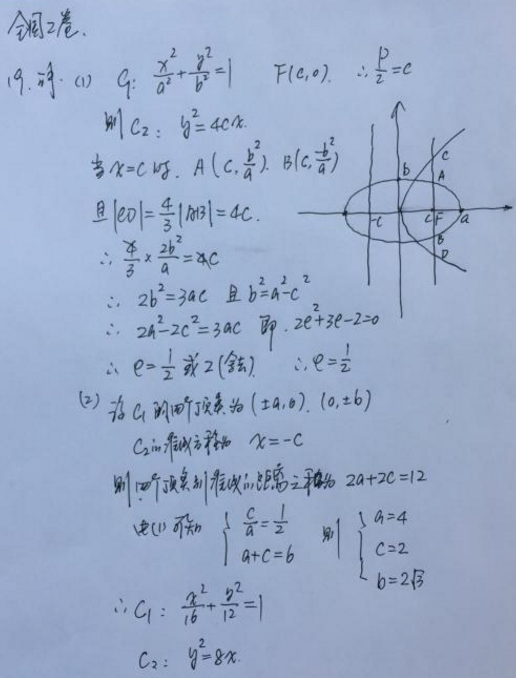 全国2卷.
19.解.(1) C₁: x²/a²+y²/b²=1 F(c,0). ∴p/2=c
则C₂: y²=4cx.
当x=c时. A(c,b²/a). B(c,b²/a)
且|CD|=4/3|AB|=4c.
∴4/3×2b²/a=4c
∴ 2b²=3ac 且b²=a²-c²
∴ 2a²-2c²=3ac 即. 2e²+3e-2=0
∴ e=1/2 或2(舍去). ∴e=1/2
b
C
A
-c
c
F
a
B
D
(2) 设C₁的四个顶点为(±a,0).(0,±b)
C₂的准线方程为 x=-c
则四个顶点到准线的距离之和为 2a+2c=12
由(1)可知 { c/a=1/2 a+c=6 则 { a=4 c=2 b=2√3
∴C₁: x²/16+y²/12=1
C₂: y²=8x.